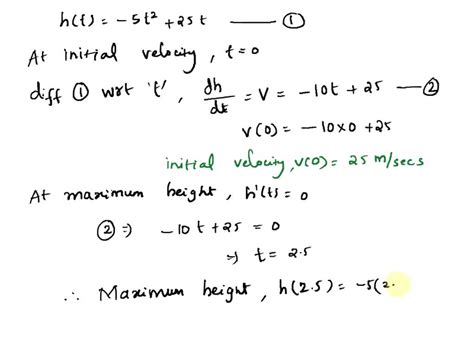 h(t) = -5t² + 25t —— ①
At initial velocity, t=0
diff ① wrt 't', dh/dt = V = -10t + 25 — ②
V(0) = -10×0 +25
initial velocity, v(0) = 25 m/secs
At maximum height, h'(t) = 0
② ⇒ -10t + 25 = 0
⇒ t = 2.5
∴ Maximum height, h(2.5) = -5(2.